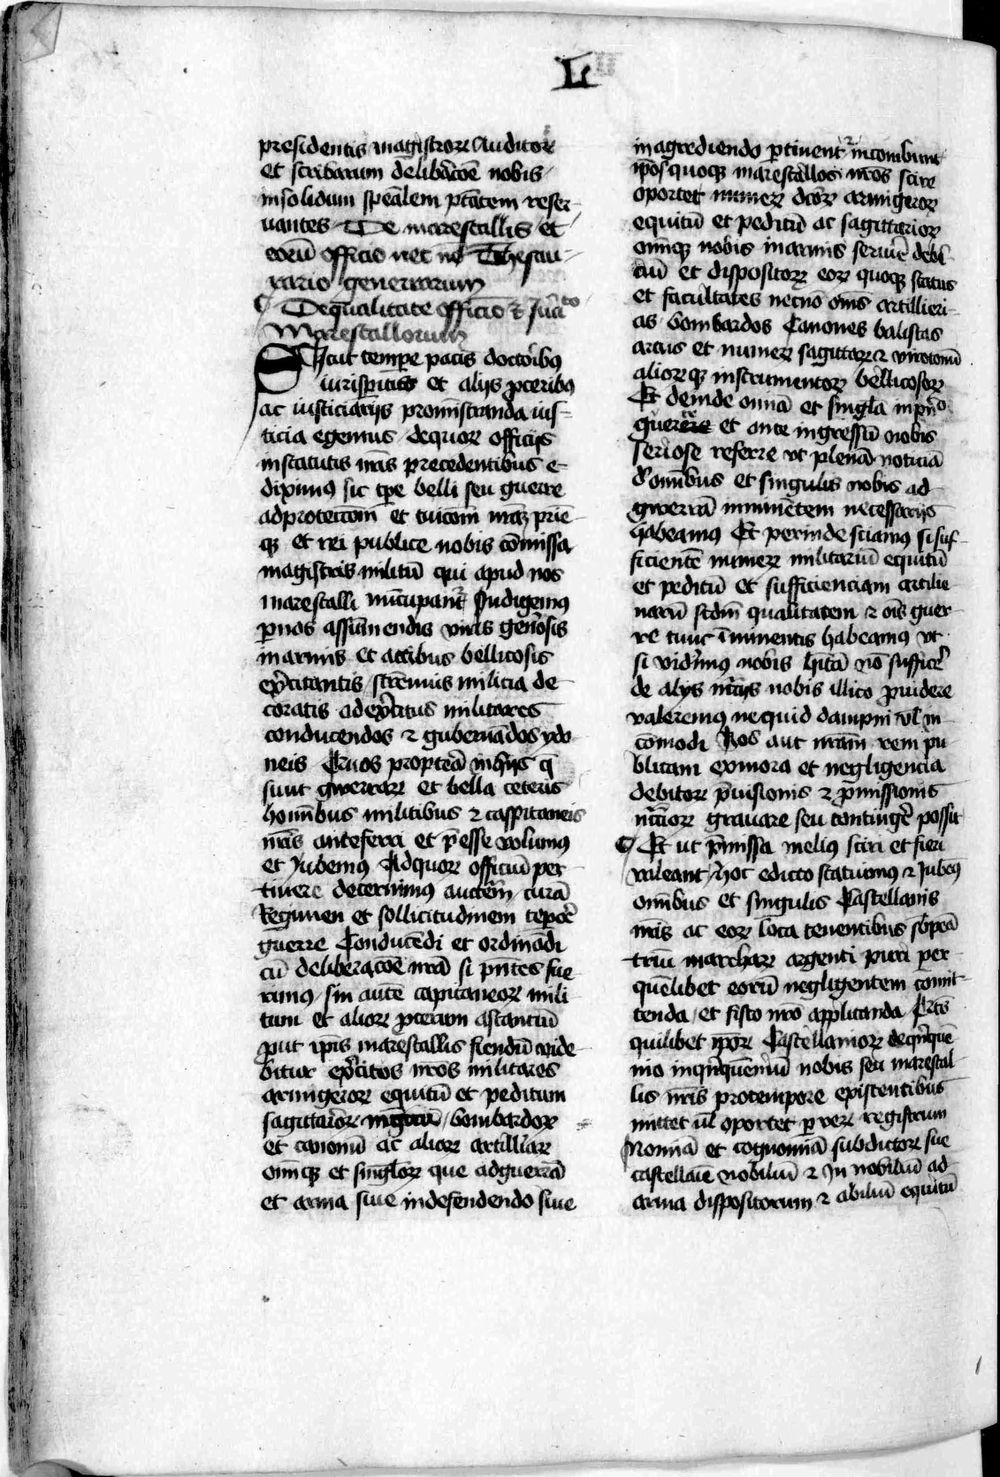 L
presidentis magistrorꝝ Auditorꝝ
et scribarum delibacōe nobis
insolidum spēalem ptātem reser-
uantes De marescallis et
eorū officio nec nō Thesau-
rario guerrarum
De qualitate officio et
Marescallorum
Sicut tempe pacis doctoribꝯ
iurispitis et alijs proceribꝯ
ac iusticiarijs pro ministranda ius-
ticia egemus de quorꝝ officijs
institutis nr̄is precedentibus e-
diximꝯ sic tpe belli seu guerre
ad protectōem et tuicōem nrāꝝ prie
qꝫ et rei publice nobis cōmissa
magistris militū qui apud nos
marescalli nūcupant᷑ Indigemꝯ
p nos assumendis viris gen̄osis
in armis et actibus bellicosis
exercitantis strēnuis milicia de
coratis ad exercitus militares
conducendos ⁊ gubernādos ydo
neis Quos propteā in hijs q̄
sunt gwerrarꝝ et bella ceteris
hominibus militibus ⁊ cappitaneis
nr̄is anteferri et p̄esse volumus
et Jubemꝯ Ad quorꝝ officiū per
tinere decernimꝯ auctem curā
Regimen et sollicitudinem tēpore
guerre Conducēdi et ordinādi
cū deliberacōe nrā si pn̄tes fue
rimꝯ sin autē capitaneorꝝ mili
tum et aliorꝝ procerum astantiū
prout ipis marescallis fiendū vide
bitur exercitos nr̄os militares
armigerorꝝ equitū et peditum
sagittariorꝝ bombardorꝝ
et canonū ac aliorꝝ artilliarꝝ
omniūqꝫ et singlorꝝ que ad guerrā
et arma siue in defendendo siue
in agrediendo ptinent ⁊ incombunt
ipōs quoqꝫ marescallos nr̄os scire
oportet numerꝝ dcōrꝝ armigerorꝝ
equitū et peditū ac sagittariorꝝ
omniūqꝫ nobis in armis seruire debē
ciū et dispositorꝝ eorꝝ quoqꝫ status
et facultates necnō om̄s artillieri-
as bombardos Canones balistas
arcus et numerꝝ sagittarꝝ ⁊ viretonū
aliorꝝqꝫ instrumentorꝝ bellicosorꝝ
Et deinde omnia et singla
querere et ante ingressū nobis
seriose referre vt plenā noticiā
de omnibus et singulis nobis ad
gwerrā iminentem necessarijs
habeamus Et perinde sciamꝯ si suf-
ficientē numerꝝ militariū equitū
et peditū et sufficienciam artilie
riarū scdm qualitatem ⁊ om̄s guer-
re tunc iminentis habeamꝯ vt
si vidimꝯ nobis nō sufficere
de alijs nr̄ijs nobis illico prouidere
valeremꝯ ne quid dampni vl in-
cōmodi Nos aut nrām rem pu
blicam ex mora et negligencia
debitorꝝ p̄uisionis ⁊ p̄missionis
grauare seu contingere possit
Et ut p̄missa meliꝯ sciri et fieri
valeant hoc edicto statuimꝯ ⁊ Jubemꝯ
omnibus et singulis Castellanis
nr̄is ac eorꝝ loca tenentibus sb pena
triū marcharꝝ argenti puri per
quēlibet eorū negligentem comit-
tenda et fisco nr̄o applicanda
quilibet ipōrꝝ Castellaniorꝝ de qinquē
nio in qinquēniū nobis seu marescal-
lis nr̄is pro tempore existentibus
mittet vl oportet p verꝝ registrum
Nomina et cognomina subdictorꝝ sue
castellanie nobiliū ⁊ In nobiliū ad
arma dispositorum ⁊ abiliū equitū